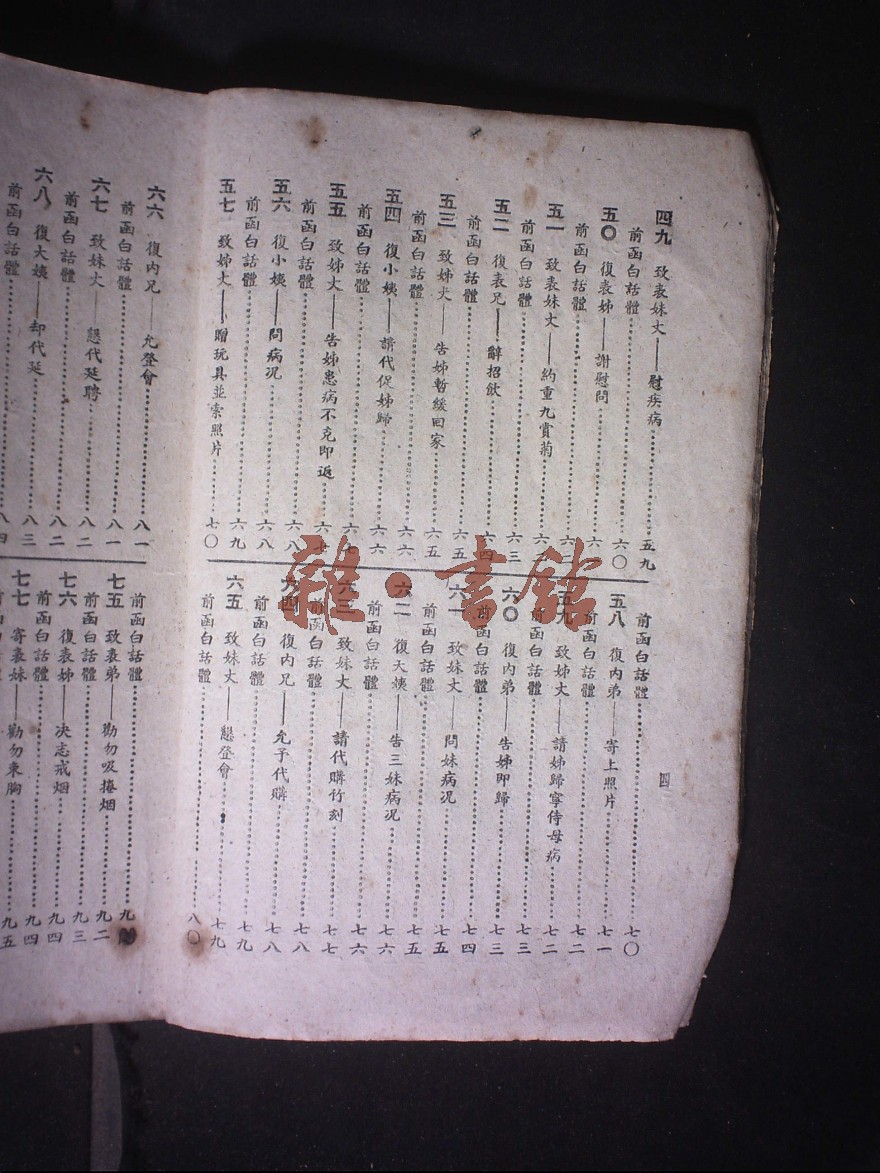 四九 致表妹丈——慰疾病 五九
前函白話體 六〇
五〇 復表姊——謝慰問 六一
前函白話體 六二
五一 致表妹丈——約重九賞菊 六二
前函白話體 六三
五二 復表兄——辭招飲 六四
前函白話體 六五
五三 致姊丈——告姊暫緩回家 六五
前函白話體 六六
五四 復小姨——請代促姊歸 六六
前函白話體 六七
五五 致姊丈——告姊患病不克即返 六七
前函白話體 六八
五六 復小姨——問病况 六八
前函白話體 六九
五七 致姊丈——贈玩具並索照片 七〇
前函白話體 七〇
五八 復內弟——寄上照片 七一
前函白話體 七二
五九 致姊丈——請姊歸寧侍母病 七二
前函白話體 七三
六〇 復內弟——告姊即歸 七三
前函白話體 七四
六一 致妹丈——問妹病况 七五
前函白話體 七五
六二 復大姨——告三妹病况 七六
前函白話體 七六
六三 致妹丈——請代購竹刻 七七
前函白話體 七八
六四 復內兄——允予代購 七八
前函白話體 七九
六五 致妹丈——懇登會 七九
前函白話體 八〇
四
六六 復內兄——允登會 八一
前函白話體 八一
六七 致妹丈——懇代延聘 八二
前函白話體 八二
六八 復大姨——却代延 八三
前函白話體 八四
前函白話體 九
七五 致表弟——勸勿吸捲烟 九二
前函白話體 九三
七六 復表姊——决志戒烟 九四
前函白話體 九四
七七 寄表妹——勸勿束胸 九五
雜·書館